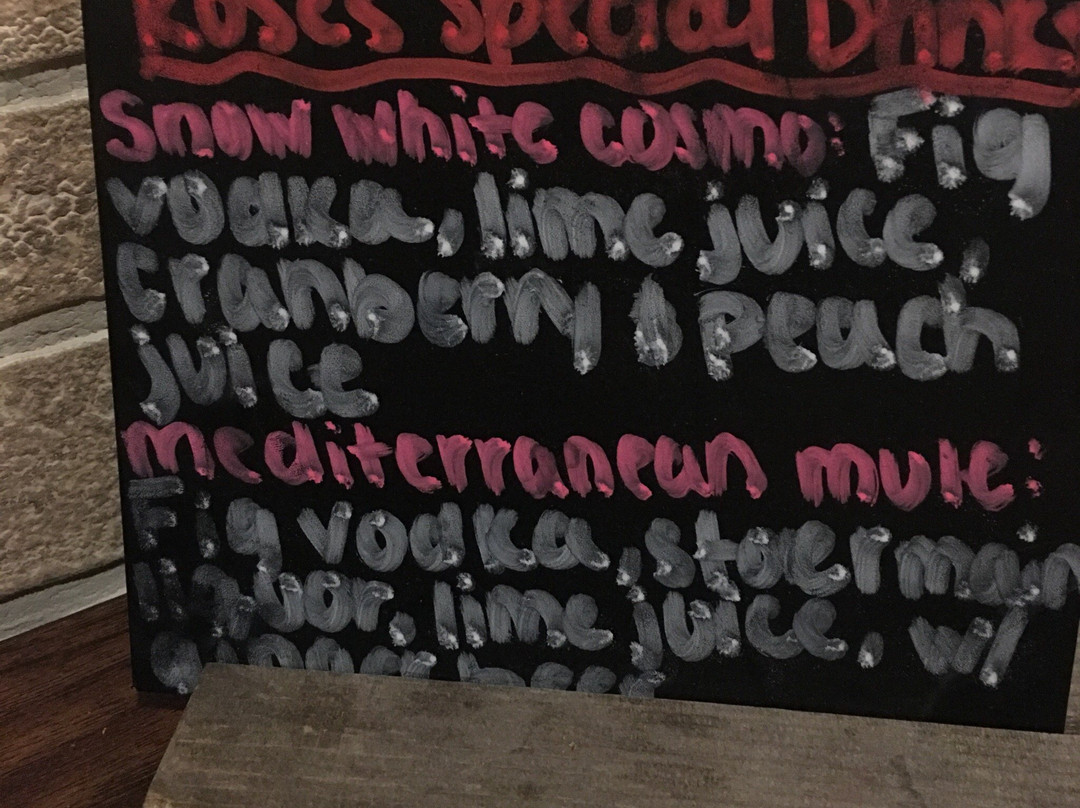 Roses special Drinks
Snow white cosmo: Fig
vodka, lime juice,
cranberry & peach
juice
mediterranean mule:
Fig vodka, stoerman
liquor, lime juice, w/